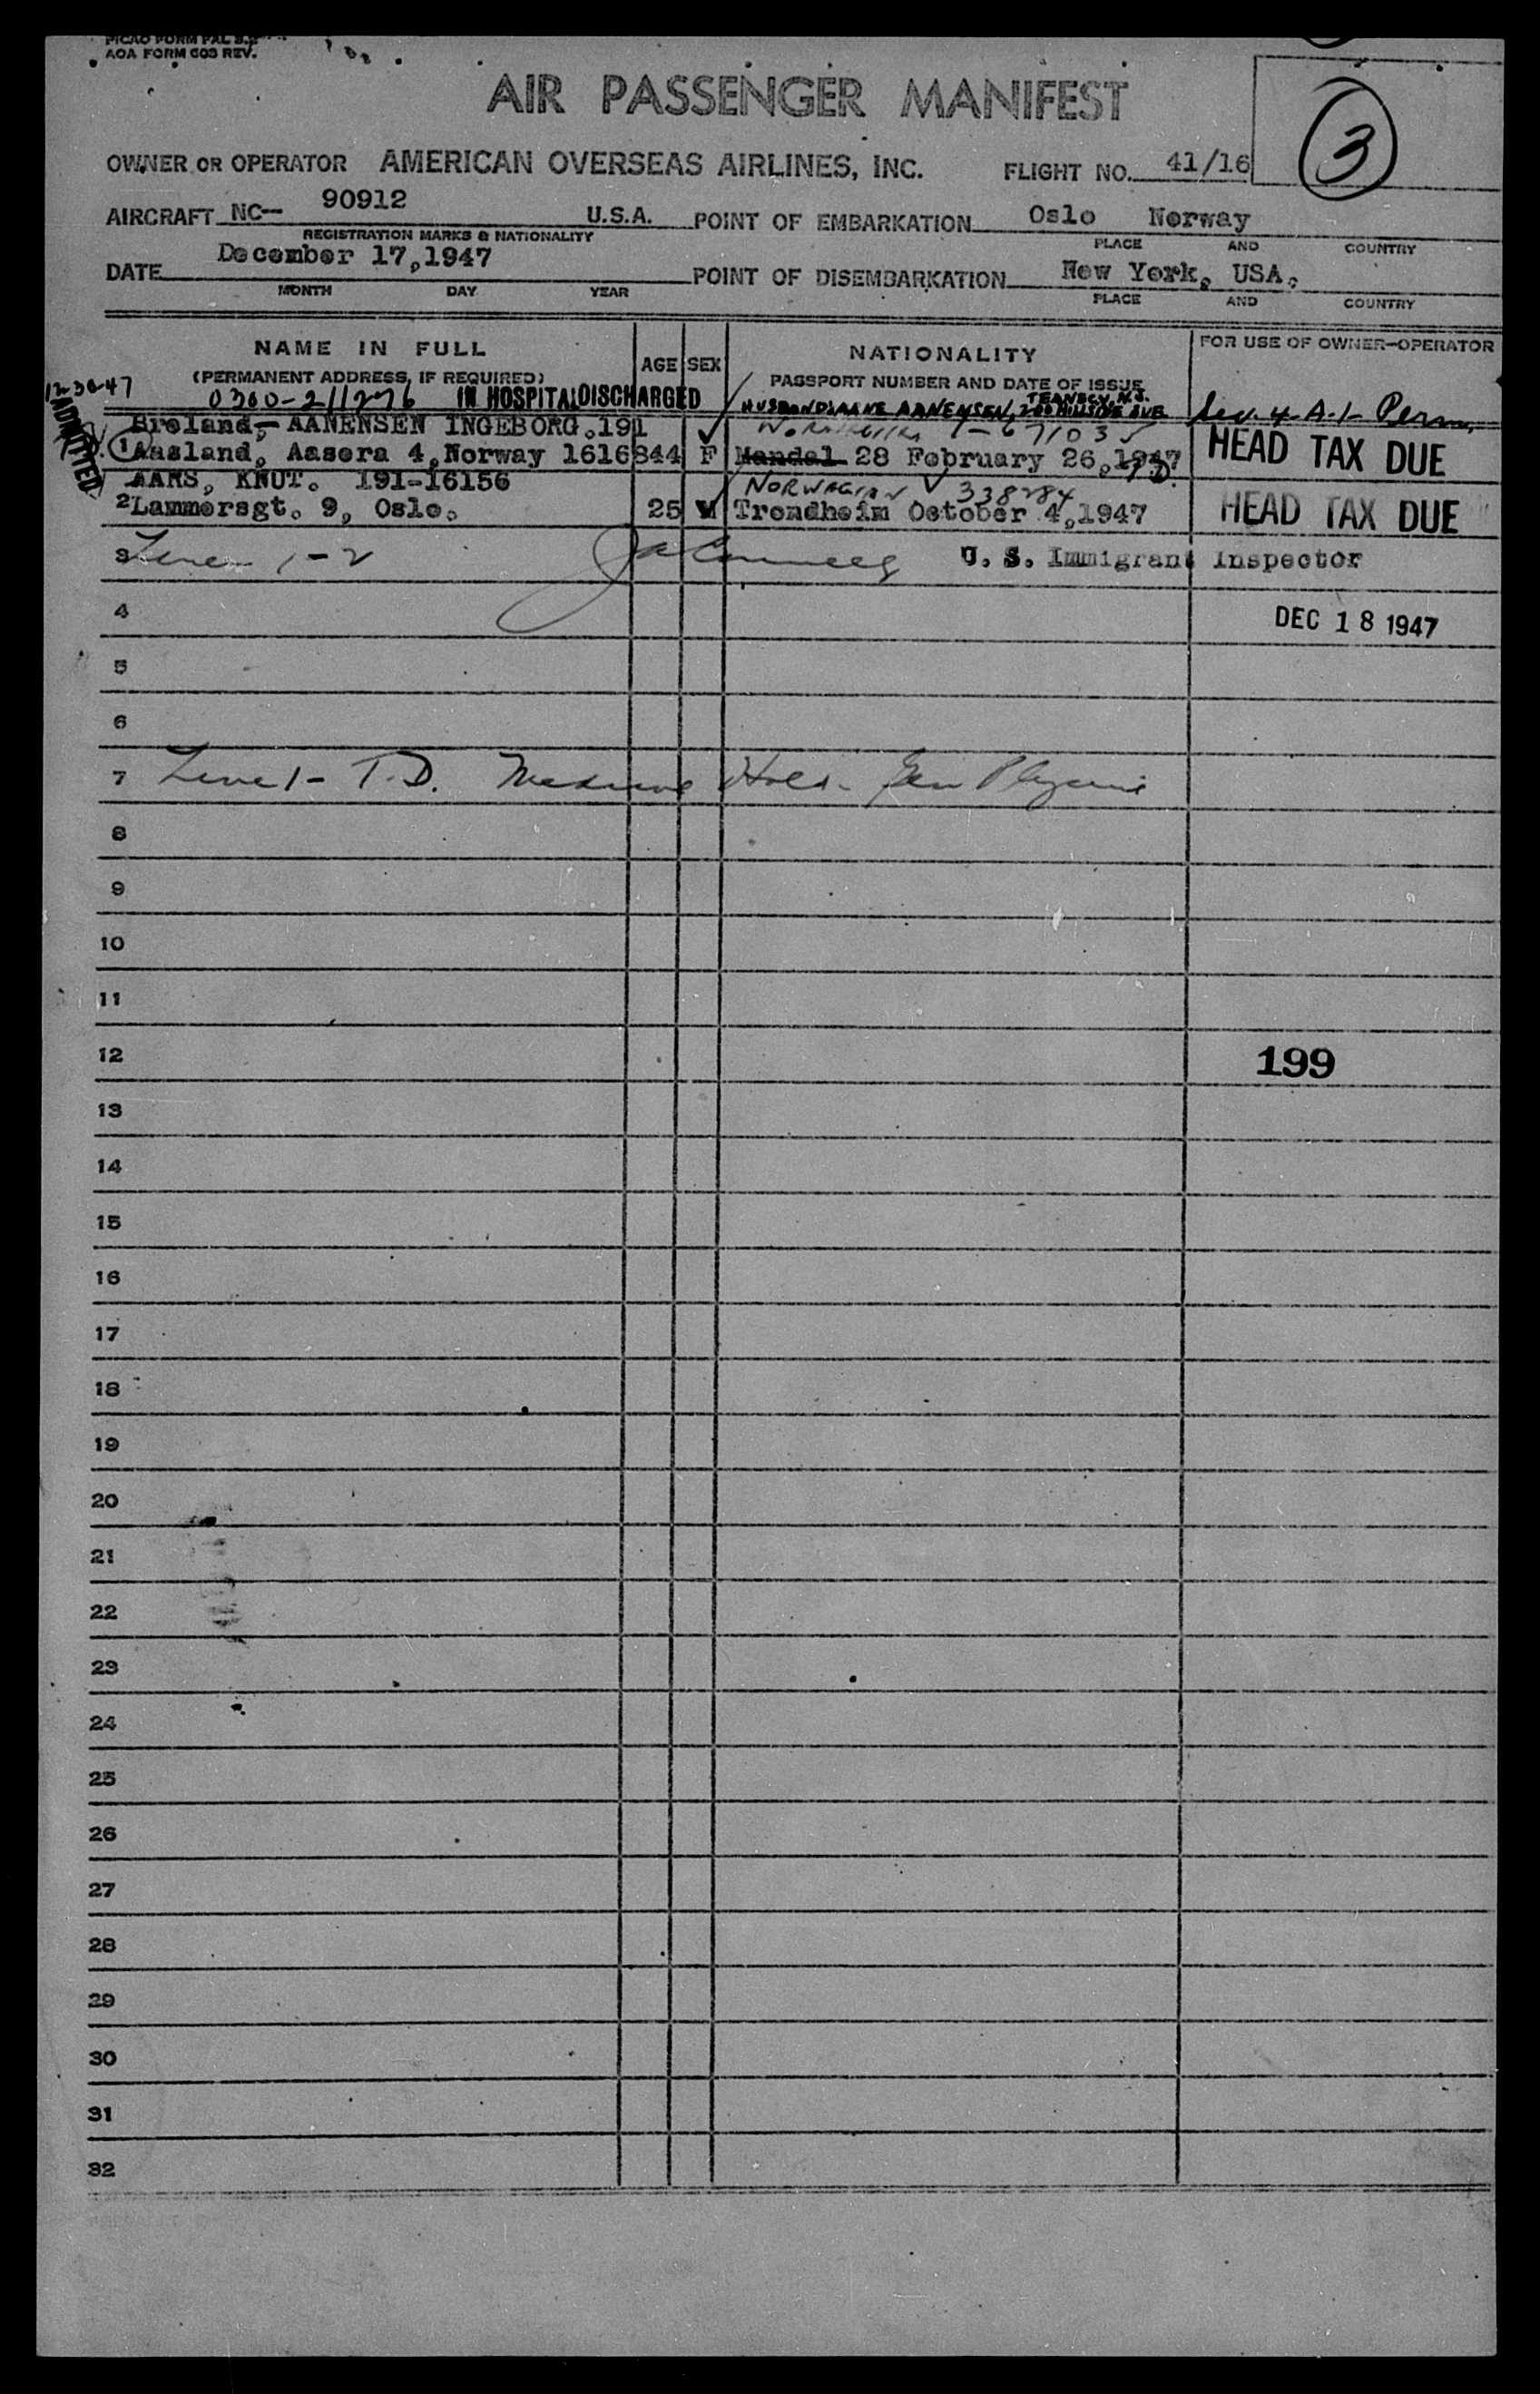 PICAO FORM PAL
AOA FORM 603 REV.
AIR PASSENGER MANIFEST
3
OWNER OR OPERATOR AMERICAN OVERSEAS AIRLINES, INC. FLIGHT NO. 41/16
AIRCRAFT NC- 90912 U.S.A. POINT OF EMBARKATION Oslo Norway
REGISTRATION MARKS & NATIONALITY PLACE AND COUNTRY
DATE December 17,1947 POINT OF DISEMBARKATION New York, USA.
MONTH DAY YEAR PLACE AND COUNTRY
NAME IN FULL AGE SEX NATIONALITY FOR USE OF OWNER-OPERATOR
(PERMANENT ADDRESS, IF REQUIRED) PASSPORT NUMBER AND DATE OF ISSUE
12-30-47 ADMITTED
0300-211276 IN HOSPITAL DISCHARGED TEANECK, N.J.
HUSBAND: AANENSEN, HILLSIDE AVE Sec. 4-A-1- Perm.
Breland, AANENSEN INGEBORG.191 1-671035
1 Aasland, Aasera 4,Norway 16168 44 F Mandal 28 February 26,1947 T.D. HEAD TAX DUE
AARS, KNUT. 191-16156 NORWEGIAN 338284
2 Lammersgt. 9, Oslo. 25 M Trondheim October 4,1947 HEAD TAX DUE
3 Lines 1-2 U. S. Immigrant Inspector
4 DEC 18 1947
5
6
7 Line 1- T.D. Hold-
8
9
10
11
12 199
13
14
15
16
17
18
19
20
21
22
23
24
25
26
27
28
29
30
31
32